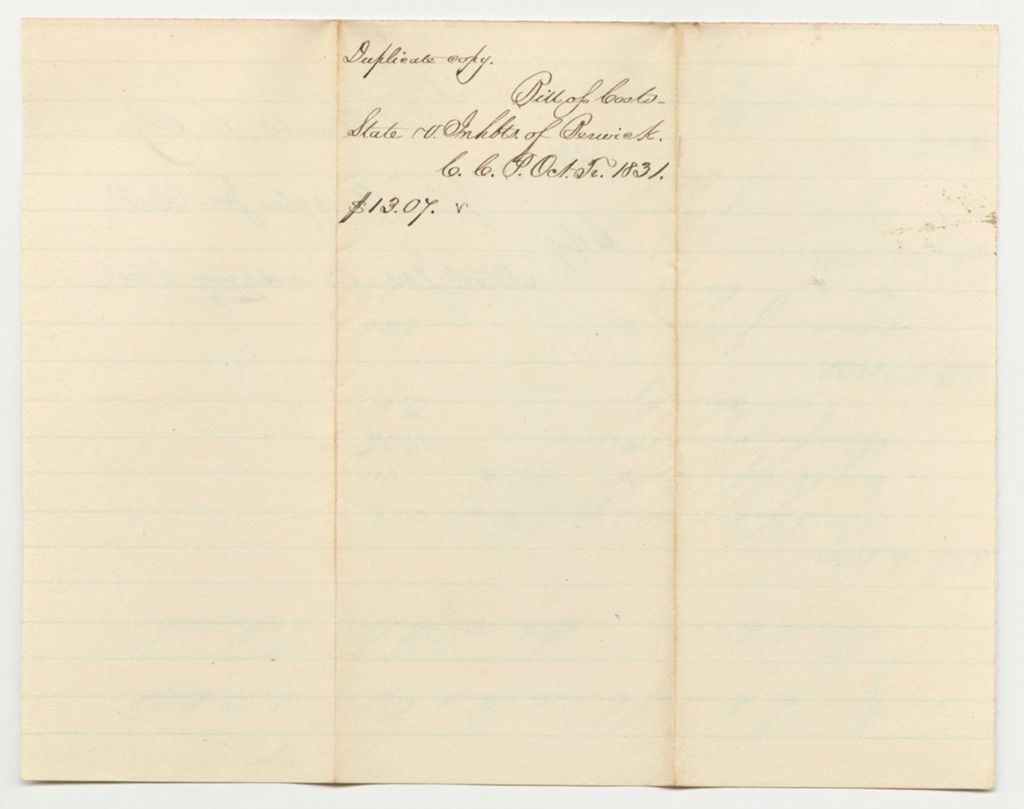 Duplicate copy.
Bill of Costs-
State v. Inhbts. of Berwick.
C. C. P. Oct. Tr. 1831.
$13.07. v